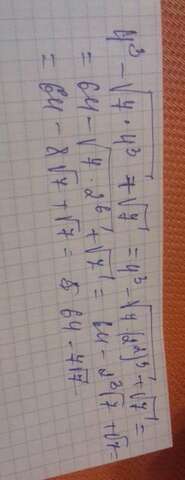 4³ - √(7 · 4³) + √7 = 4³ - √(7 (2²)³) + √7 =
= 64 - √(7 · 2⁶) + √7 = 64 - 2³√7 + √7 =
= 64 - 8√7 + √7 = 64 - 7√7